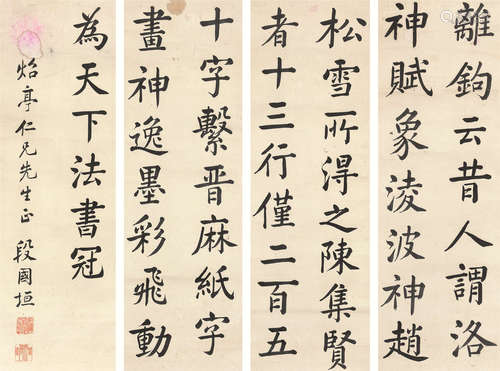 離鉤云昔人謂洛
神賦象淩波神趙
松雪所得之陳集賢
者十三行僅二百五
十字繫晋麻紙字
畫神逸墨彩飛動
為天下法書冠
炲亭仁兄先生正 段國垣